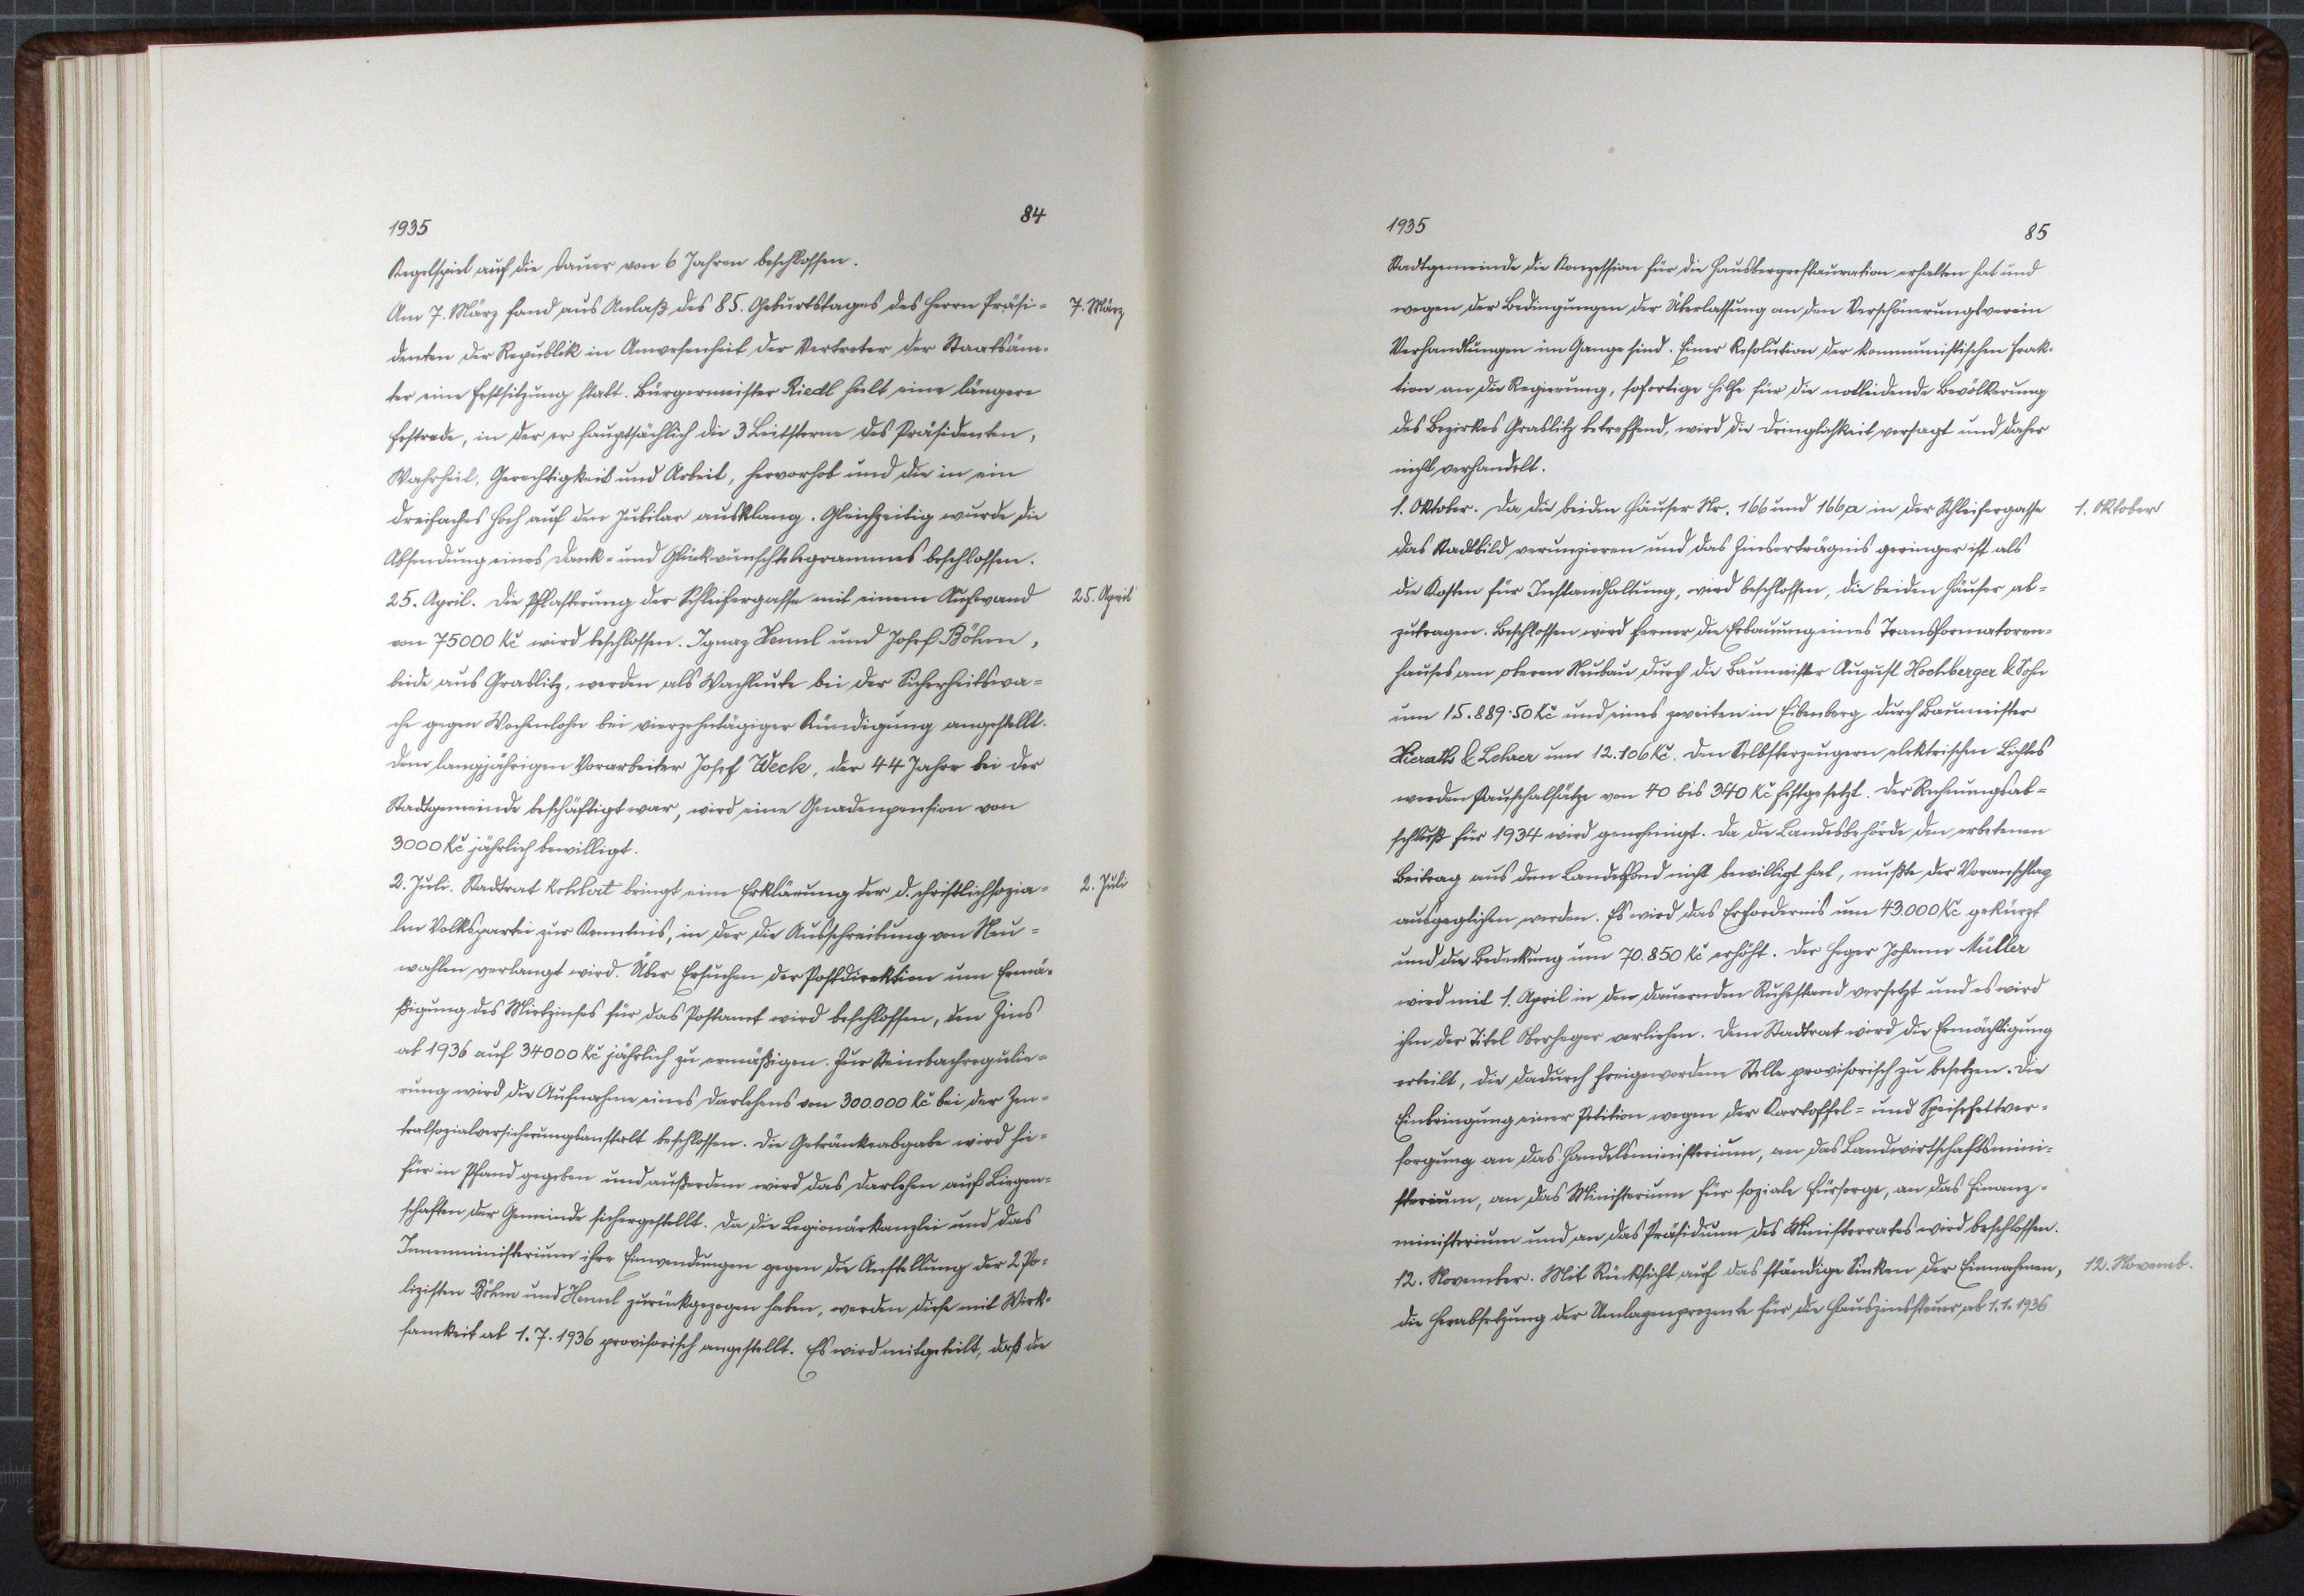 1935
84
Kegelspiel auf die Dauer von 6 Jahren beschlossen.
Am 7. März fand aus Anlaß des 85. Geburtstages des Herrn Präsi-
7. März
denten der Republik in Anwesenheit der Vertreter der Staatsäm-
ter eine Festsitzung statt. Bürgermeister Riedl hielt eine längere
Festrede, in der er hauptsächlich die 3 Leitsterne des Präsidenten,
Wahrheit, Gerechtigkeit und Arbeit, hervorhob und die in ein
dreifaches Hoch auf den Jubilar ausklang. Gleichzeitig wurde die
Absendung eines Dank- und Glückwunschtelegrammes beschlossen.
25. April. Die Pflasterung der Schleifergasse mit einem Aufwand
25. April
von 75000 Kč wird beschlossen. Ignaz Hennl und Josef Böhm,
beide aus Graslitz, werden als Wachleute bei der Sicherheitswa-
che gegen Wochenlohn bei vierzehntägiger Kündigung angestellt.
Dem langjährigen Vorarbeiter Josef Weck, der 44 Jahre bei der
Stadtgemeinde beschäftigt war, wird eine Gnadenpension von
3000 Kč jährlich bewilligt.
2. Juli. Stadtrat bringt eine Erklärung der d. christlichsozia-
2. Juli
len Volkspartei zur Kenntnis, in der die Ausschreibung von Neu-
wahlen verlangt wird. Über Ersuchen der Postdirektion um Ermä-
ßigung des Mietzinses für das Postamt wird beschlossen, den Zins
ab 1936 auf 34000 Kč jährlich zu ermäßigen. Zur Steinbachregulie-
rung wird die Aufnahme eines Darlehens von 300.000 Kč bei der Zen-
tralsozialversicherungsanstalt beschlossen. Die Getränkeabgabe wird hie-
für in Pfand gegeben und außerdem wird das Darlehen auf Liegen-
schaften der Gemeinde sichergestellt. Da die Legionärkanzlei und das
Innenministerium ihre Einwendungen gegen die Anstellung der 2 Po-
lizisten Böhm und Hennl zurückgezogen haben, werden diese mit Wirk-
samkeit ab 1.7.1936 provisorisch angestellt. Es wird mitgeteilt, daß die
1935
85
Stadtgemeinde die Konzession für die Hausbergrestauration erhalten hat und
wegen der Bedingungen der Überlassung an den Verschönerungsverein
Verhandlungen im Gange sind. Einer Resolution der kommunistischen Frak-
tion an die Regierung, sofortige Hilfe für die notleidende Bevölkerung
des Bezirkes Graslitz betreffend, wird die Dringlichkeit versagt und daher
nicht verhandelt.
1. Oktober. Da die beiden Häuser Nr. 166 und 166a in der Schleifergasse
1. Oktober
das Stadtbild verunzieren und das Zinserträgnis geringer ist als
die Kosten für Instandhaltung, wird beschlossen, die beiden Häuser ab-
zutragen. Beschlossen wird ferner die Erbauung eines Transformatoren-
hauses am oberen Neubau durch die Baumeister August Hochberger & Sohn
um 15.889·50 Kč und eines zweiten in Eibenberg durch Baumeister
& Lehrer um 12.106 Kč. Den Selbsterzeugern elektrischen Lichtes
werden Pauschalsätze von 40 bis 340 Kč festgesetzt. Der Rechnungsab-
schluß für 1934 wird genehmigt. Da die Landesbehörde den erbetenen
Beitrag aus dem Landesfond nicht bewilligt hat, mußte der Voranschlag
ausgeglichen werden. Es wird das Erfordernis um 43.000 Kč gekürzt
und die Bedeckung um 70.850 Kč erhöht. Der Heger Johann Müller
wird mit 1. April in den dauernden Ruhestand versetzt und es wird
ihm der Titel Oberheger verliehen. Dem Stadtrat wird die Ermächtigung
erteilt, die dadurch freigewordene Stelle provisorisch zu besetzen. Die
Einbringung einer Petition wegen der Kartoffel- und Speisefettver-
sorgung an das Handelsministerium, an das Landwirtschaftsmini-
sterium, an das Ministerium für soziale Fürsorge, an das Finanz-
ministerium und an das Präsidium des Ministerrates wird beschlossen.
12. November. Mit Rücksicht auf das ständige Sinken der Einnahmen,
12. Novemb.
die Herabsetzung der Umlagenprozente für die Hauszinssteuer ab 1.1.1936